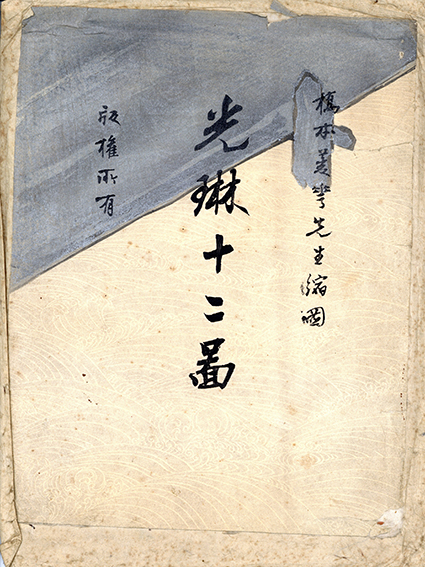 橋本菱華先生縮圖
光琳十二啚
版權所有